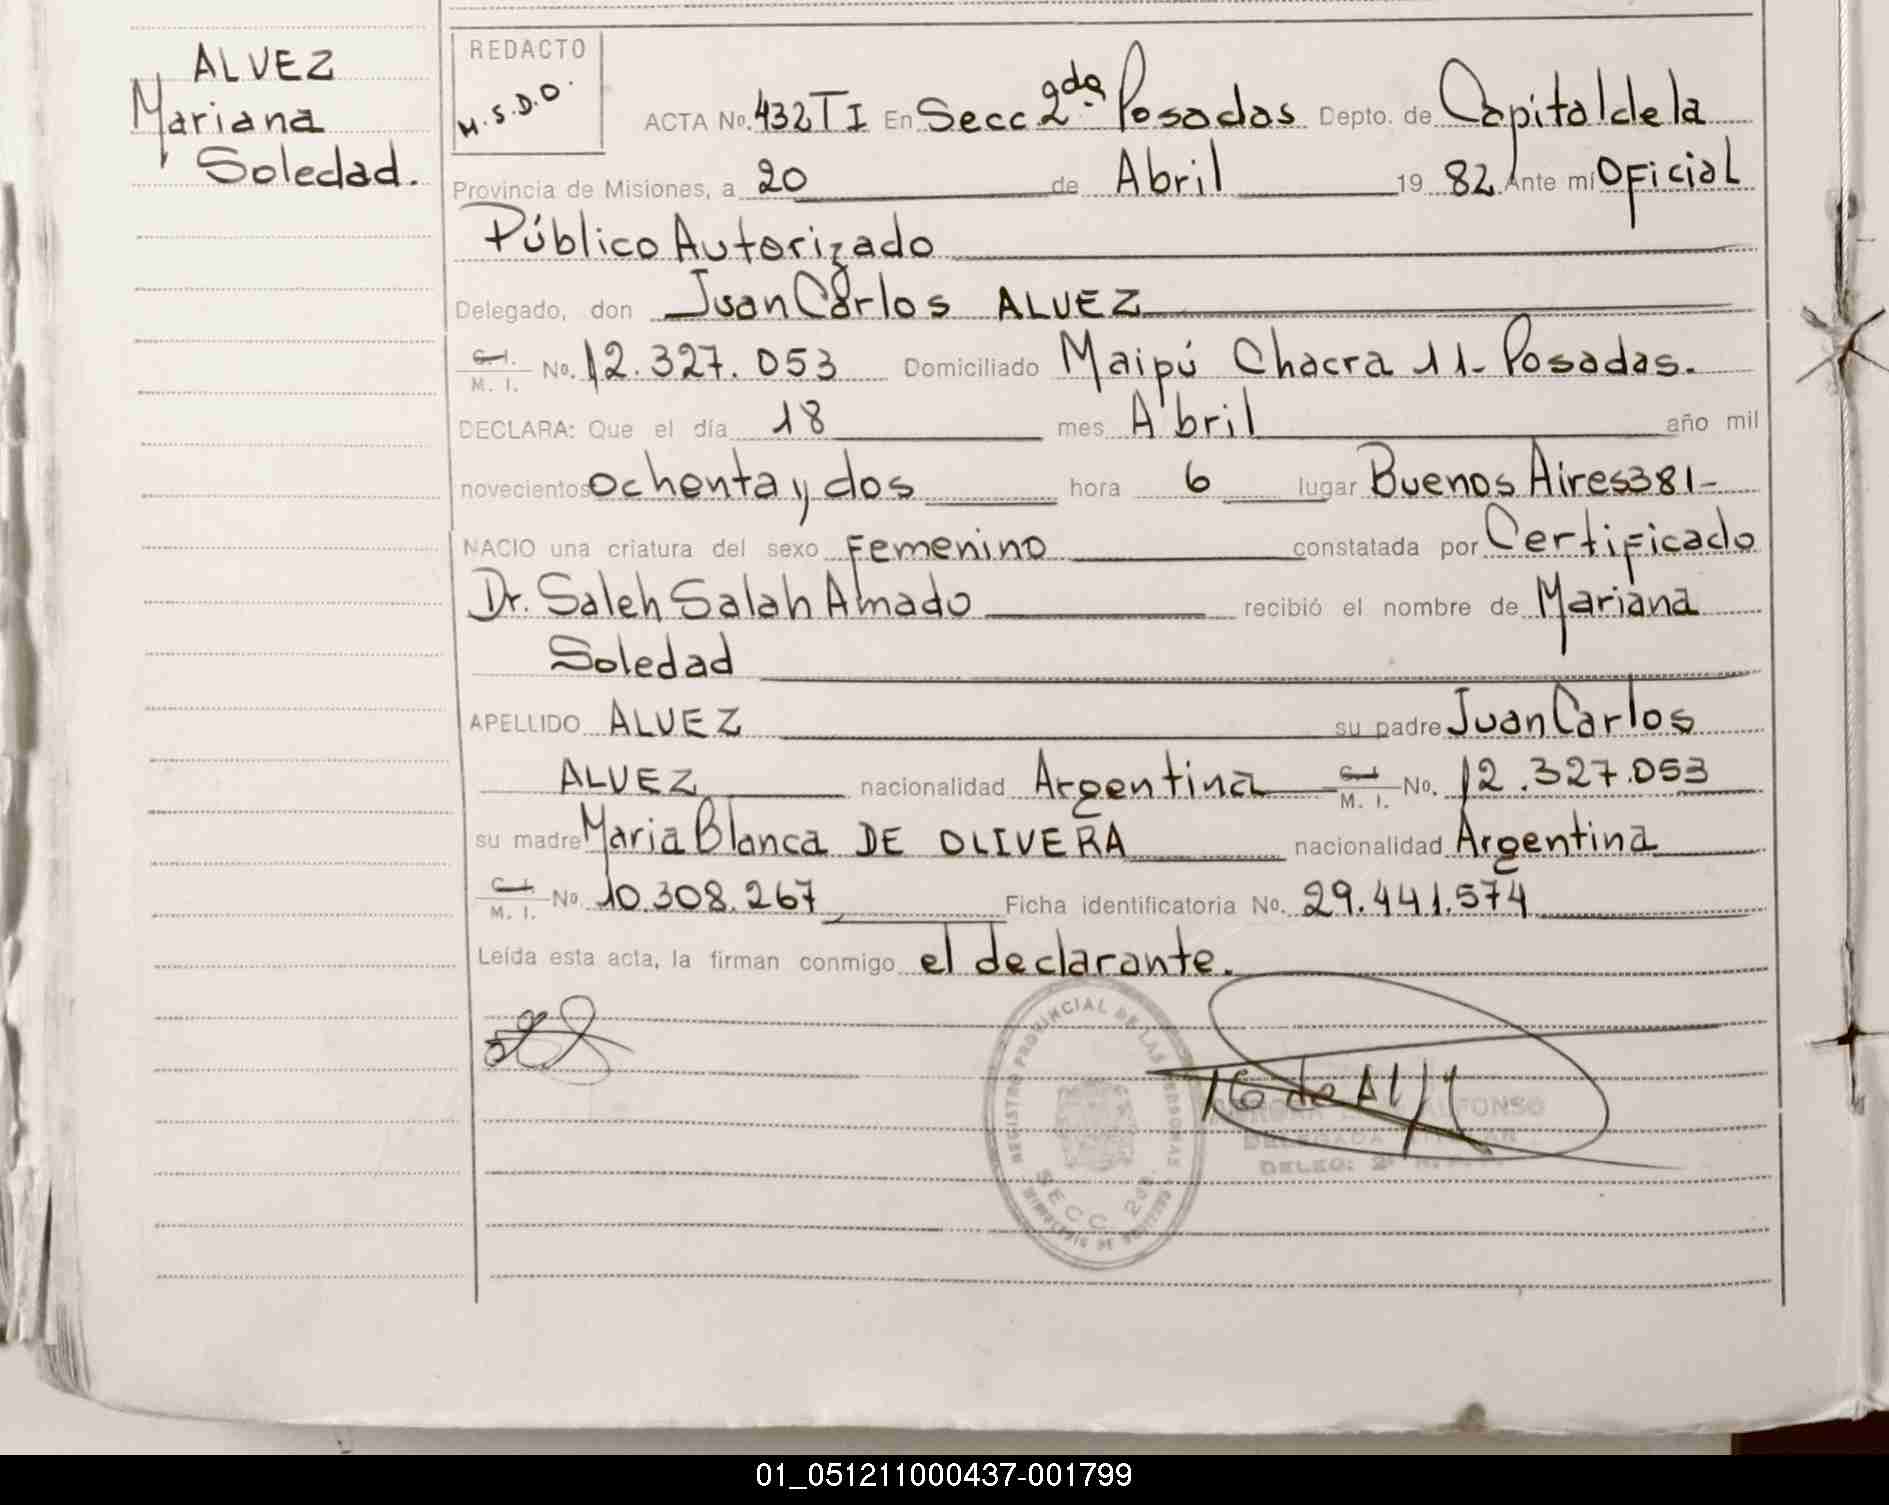 ALVEZ
Mariana
Soledad.
REDACTO
M.S.D.O.
ACTA No. 432 T I En Secc 2da. Posadas Depto. de Capital de la
Provincia de Misiones, a 20 de Abril 19 82. Ante mi Oficial
Público Autorizado
Delegado, don Juan Carlos ALVEZ
C.I.
M. I. No. 12.327.053 Domiciliado Maipú Chacra 11- Posadas.
DECLARA: Que el día 18 mes Abril año mil
novecientos ochenta y dos hora 6 lugar Buenos Aires 381-
NACIO una criatura del sexo Femenino constatada por Certificado
Dr. Saleh Salah Amado recibió el nombre de Mariana
Soledad
APELLIDO ALVEZ su padre Juan Carlos
ALVEZ nacionalidad Argentina C.I. M. I. No. 12.327.053
su madre Maria Blanca DE OLIVERA nacionalidad Argentina
C.I. M. I. No 10.308.267 Ficha identificatoria No. 29.441.574
Leída esta acta, la firman conmigo el declarante.
REGISTRO PROVINCIAL DE LAS PERSONAS
SECC. 2da.
ALFONSO
DELEGADA
DELEG: 2ª
01_051211000437-001799